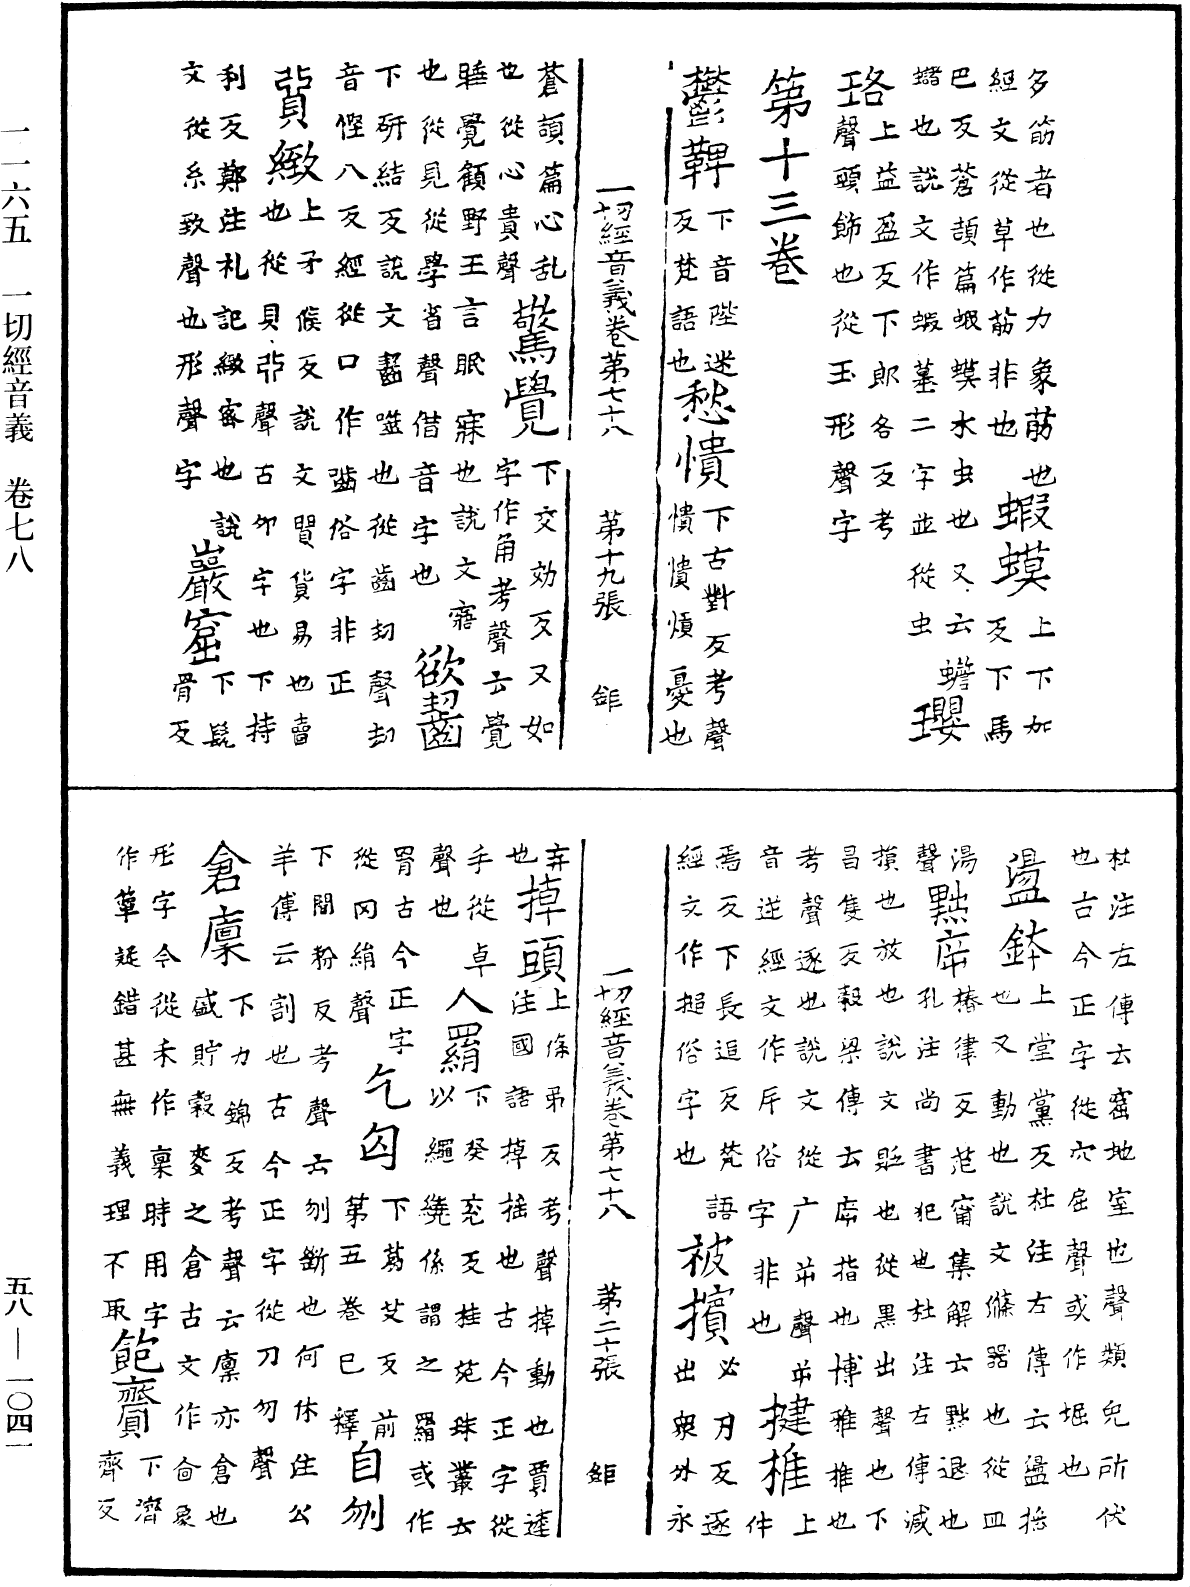 多筋者也從力象䈥也
經文從草作莇非也
蝦蟆
上下加
反下馬
巴反蒼頡篇蝦蟆水虫也又云蟾
蠩也說文作蝦蟇二字並從虫
瓔
珞
上益盈反下郎各反考
聲頭飾也從玉形聲字
第十三卷
鬱鞞
下音陛迷
反梵語也
愁憒
下古對反考聲
憒憒煩憂也
一切經音義卷第七十八 第十九張 鉅
蒼頡篇心乱
也從心貴聲
驚覺
下交効反又如
字作角考聲云覺
睡覺顧野王言眠寐也說文寤
也從見從學省聲借音字也
欲齧
下研結反說文齧噬也從齒㓞聲㓞
音慳八反經從口作嚙俗字非正
貿緻
上矛候反說文貿貨易也賣
也從貝丣聲古卯字也下持
利反鄭注礼記緻密也說
文從糸致聲也形聲字
巖窟
下髡
骨反
杜注左傳云窟地室也聲類兔所伏
也古今正字從穴屈聲或作堀也
盪鉢
上堂黨反杜注左傳云盪搖
也又動也說文滌器也從皿
湯
聲
黜㡿
椿律反范甯集解云黜退也
孔注尚書犯也杜注左傳減
損也放也說文貶也從黑出聲也下
昌隻反穀梁傳云㡿指也博雅推也
考聲逐也說文從广屰聲屰
音逆經文作斥俗字非也
揵椎
上
件
焉反下長追反梵語
經文作搥俗字也
被擯
必刃反逐
出衆外永
一切經音義卷第七十八 第二十張 鉅
弃
也
掉頭
上條弔反考聲掉動也賈逵
注國語掉搖也古今正字從
手從卓
聲也
人羂
下癸兖反桂苑珠叢云
以繩繞係謂之羂或作
罥古今正字
從冈絹聲
乞匃
下葛艾反前
第五卷已釋
自刎
下聞粉反考聲云刎斷也何休注公
羊傳云割也古今正字從刀勿聲
倉廩
下力錦反考聲云廩亦倉也
盛貯穀麥之倉古文作㐭象
形字今從禾作稟時用字
作藁疑錯甚無義理不取
飽齎
下濟
齊反
一一六五 一切經音義 卷七八
五八—一〇四一